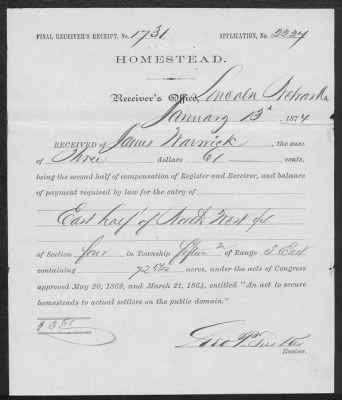 FINAL RECEIVER'S RECEIPT, No. 1731 APPLICATION, No. 2227
HOMESTEAD.
Receiver's Office, Lincoln Nebraska
January 13th 1874
RECEIVED of James Warwick the sum
of Three dollars 61 cents,
being the second half of compensation of Register and Receiver, and balance
of payment required by law for the entry of
East half of North West qr
of Section four in Township fifteen n of Range 5 East
containing 72 acres, under the acts of Congress
approved May 20, 1862, and March 21, 1864, entitled "An act to secure
homesteads to actual settlers on the public domain."
$ 3.61
Geo P. Tucker
Receiver.